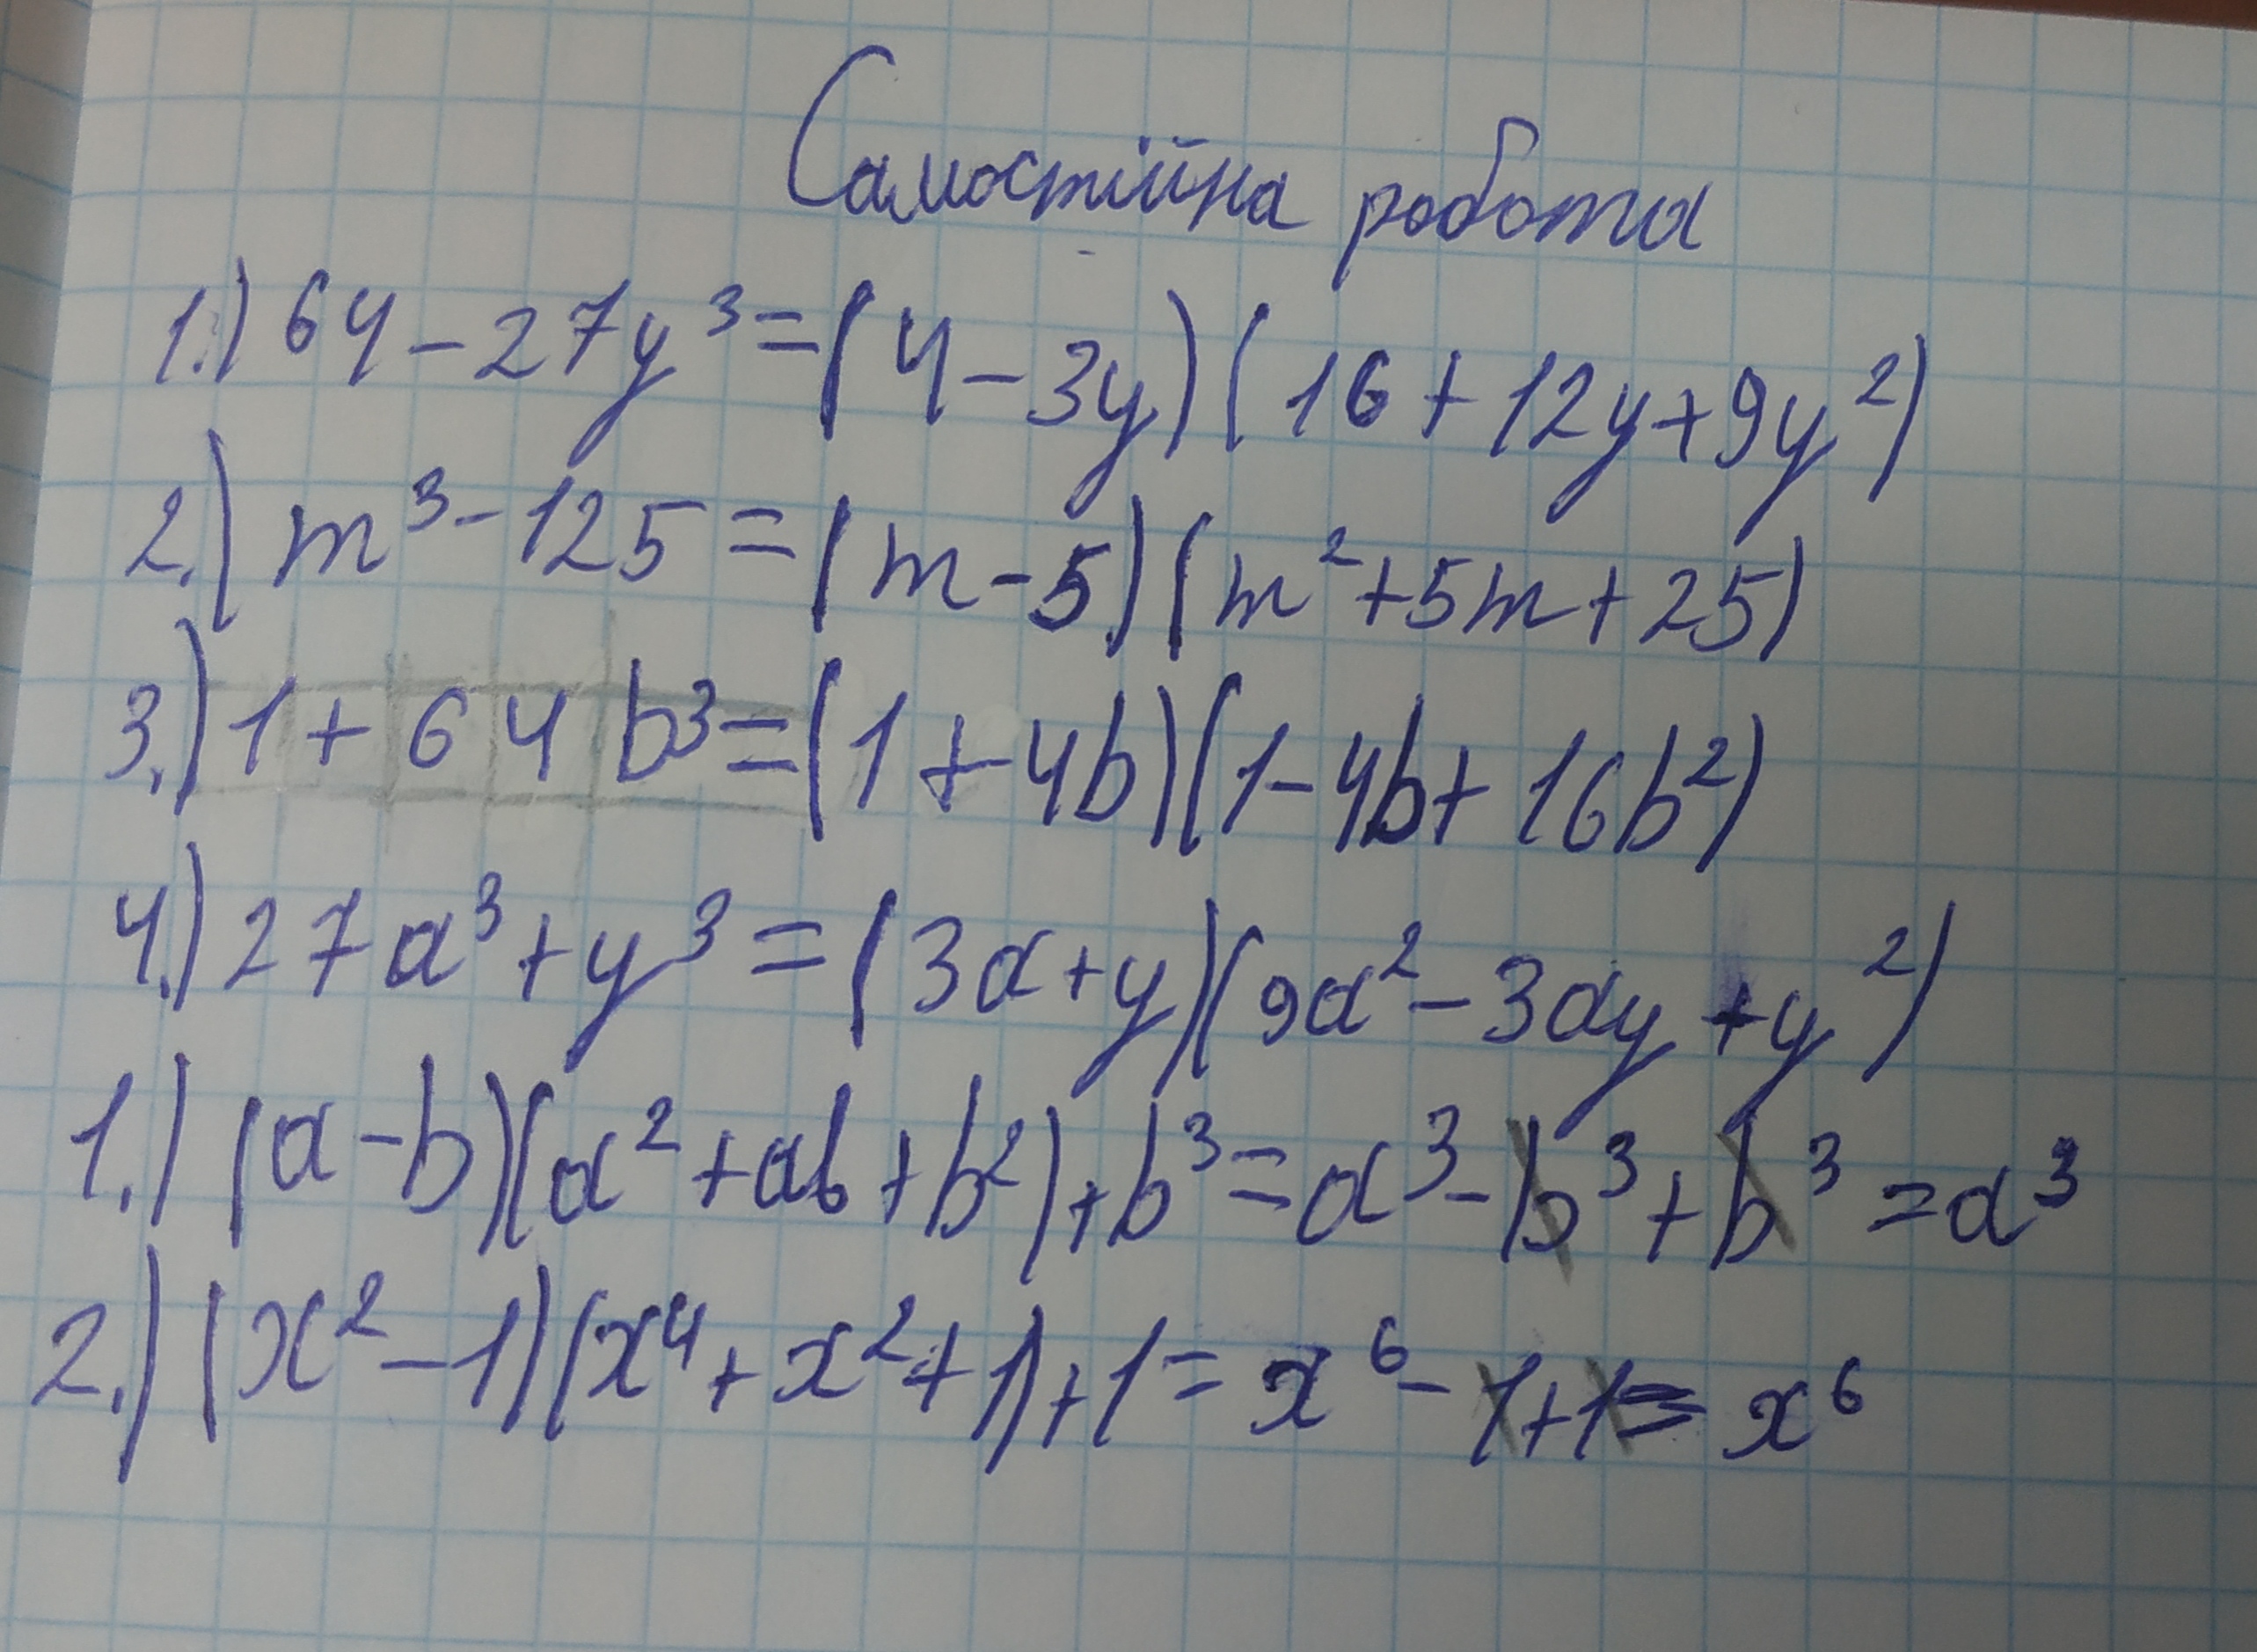 Самостійна робота
1.) 64 - 27y³ = (4 - 3y)(16 + 12y + 9y²)
2.) m³ - 125 = (m - 5)(m² + 5m + 25)
3.) 1 + 64b³ = (1 + 4b)(1 - 4b + 16b²)
4.) 27a³ + y³ = (3a + y)(9a² - 3ay + y²)
1.) (a - b)(a² + ab + b²) + b³ = a³ - b³ + b³ = a³
2.) (x² - 1)(x⁴ + x² + 1) + 1 = x⁶ - 1 + 1 = x⁶